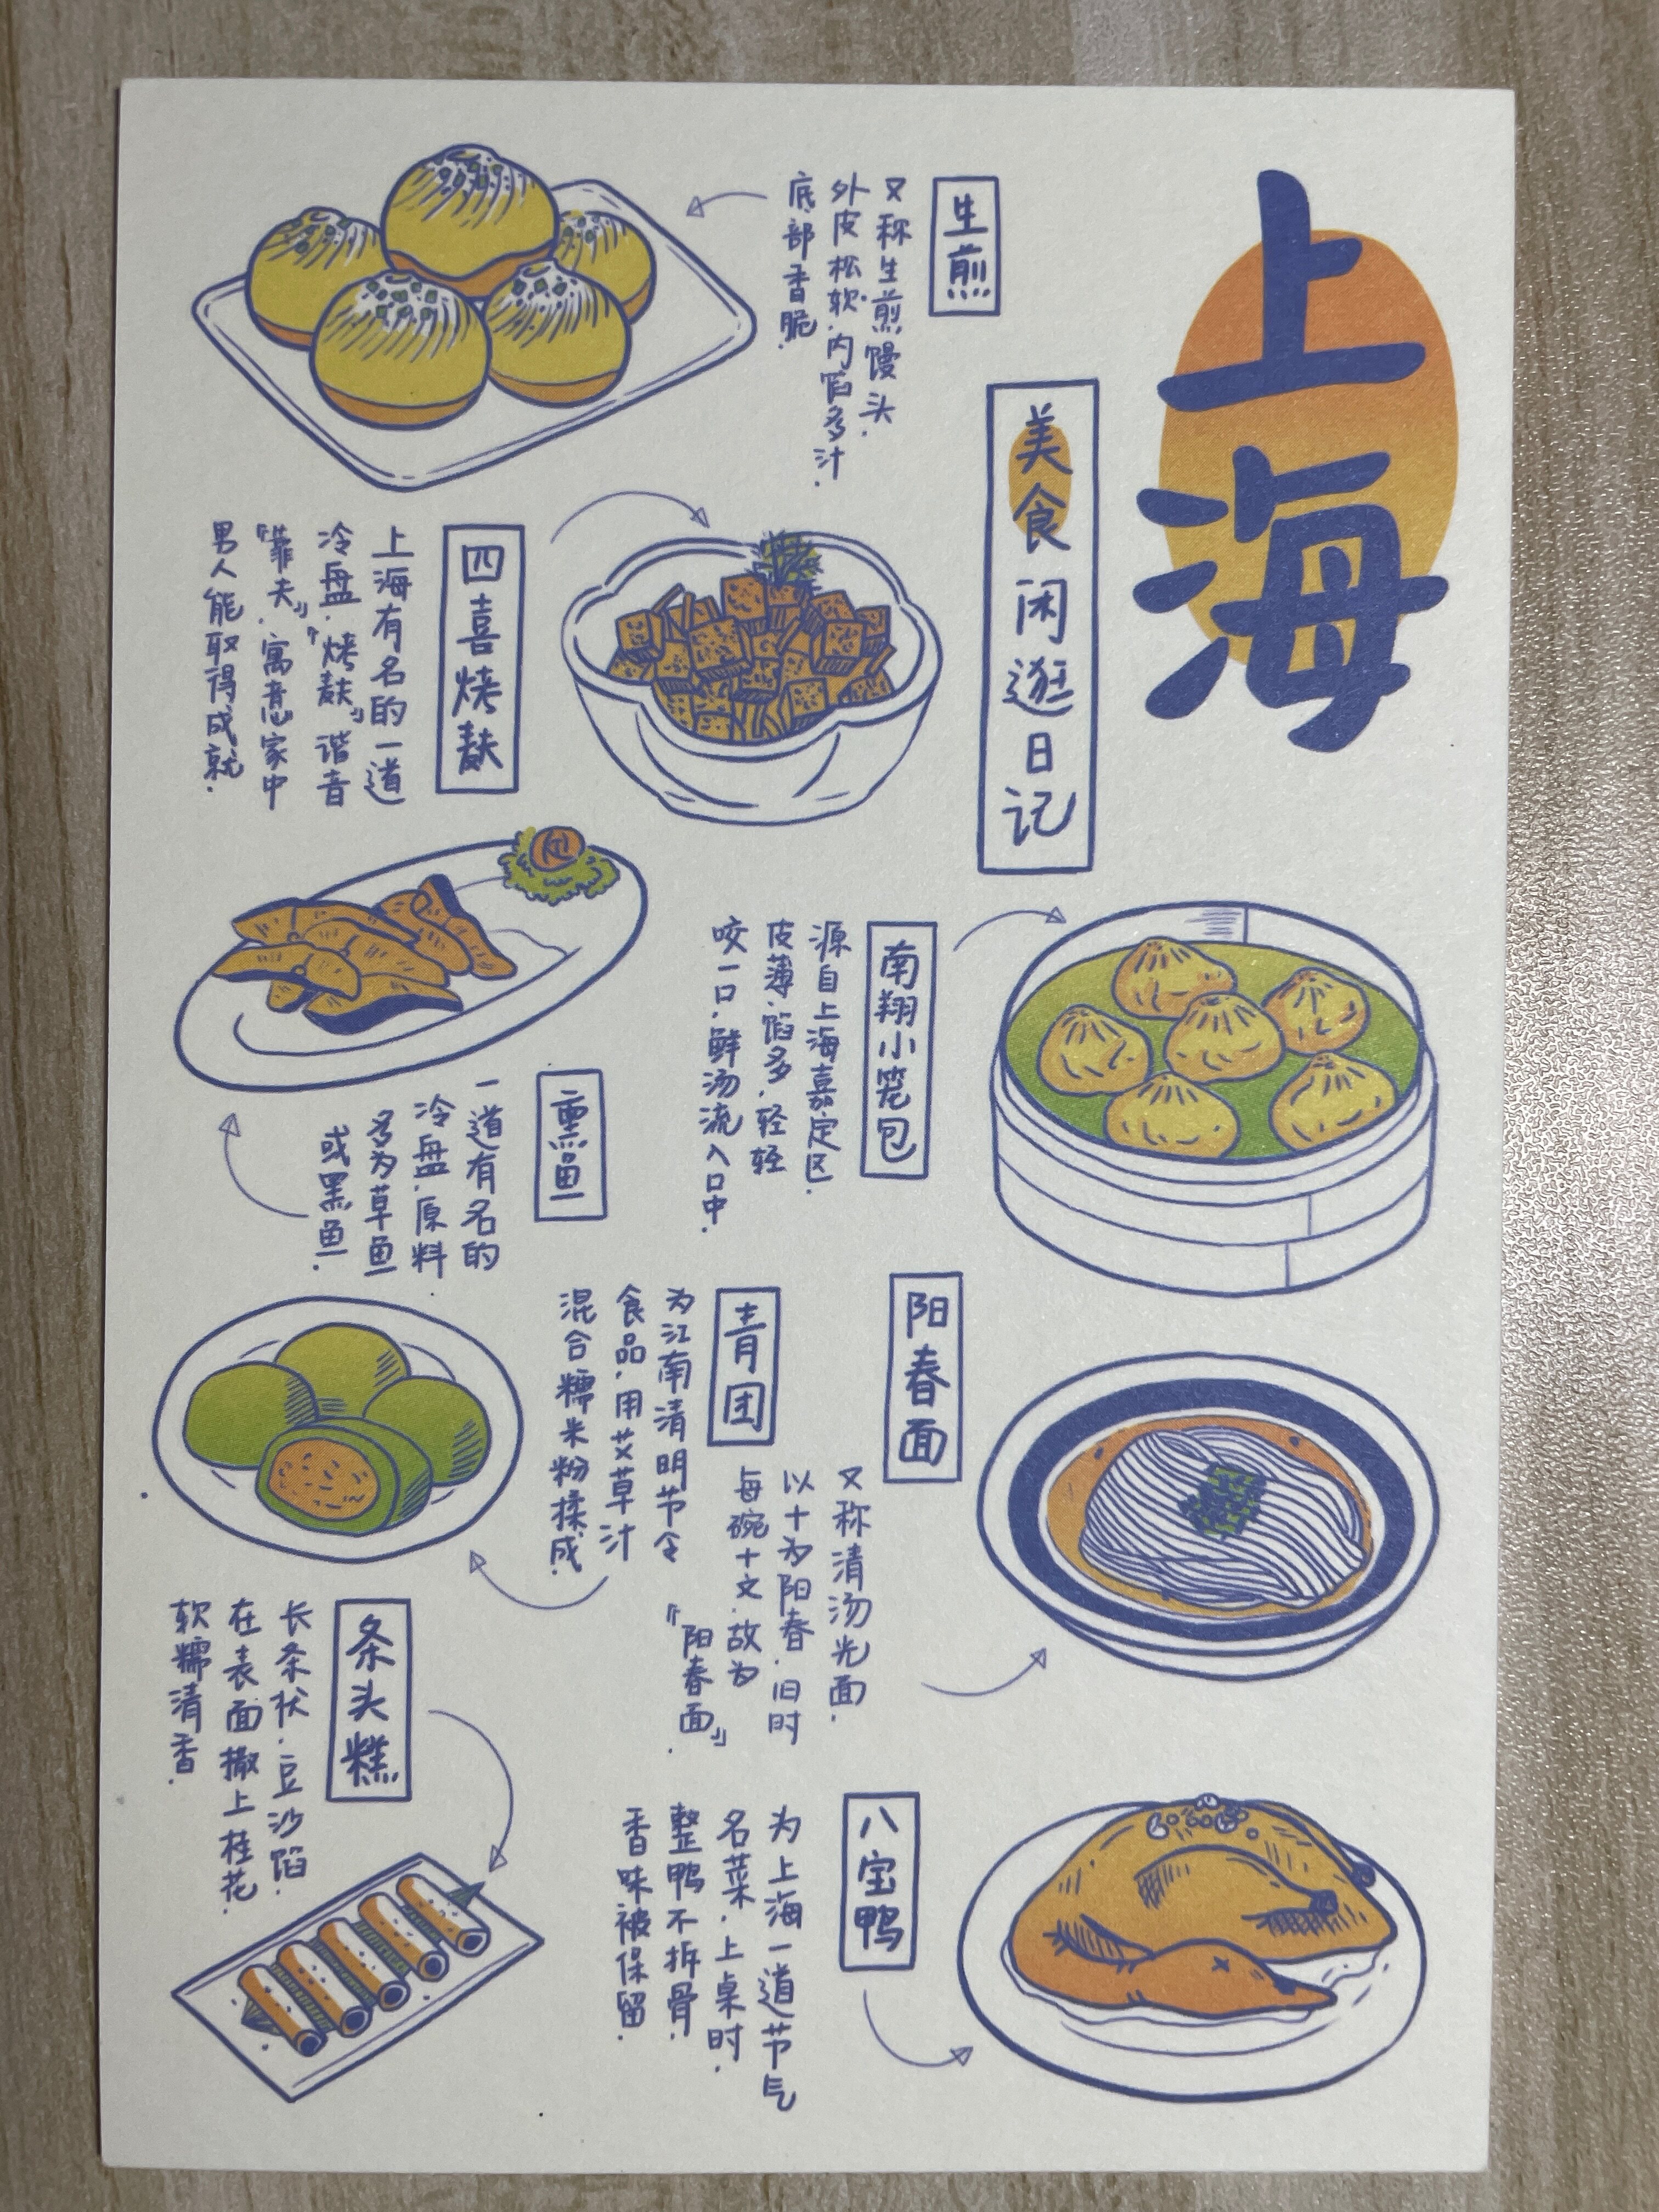 上海
美食闲逛日记
生煎
又称生煎馒头.
外皮松软.内馅多汁.
底部香脆.
四喜烤麸
上海有名的一道
冷盘.『烤麸』谐音
『靠夫』.寓意家中
男人能取得成就.
南翔小笼包
源自上海嘉定区.
皮薄.馅多.轻轻
咬一口.鲜汤流入口中.
熏鱼
一道有名的
冷盘.原料
多为草鱼
或黑鱼.
阳春面
又称清汤光面.
以十为阳春.旧时
每碗十文.故为
『阳春面』.
青团
为江南清明节令
食品.用艾草汁
混合糯米粉揉成.
八宝鸭
为上海一道节气
名菜.上桌时.
整鸭不拆骨.
香味被保留.
条头糕
长条状.豆沙馅.
在表面撒上桂花.
软糯清香.